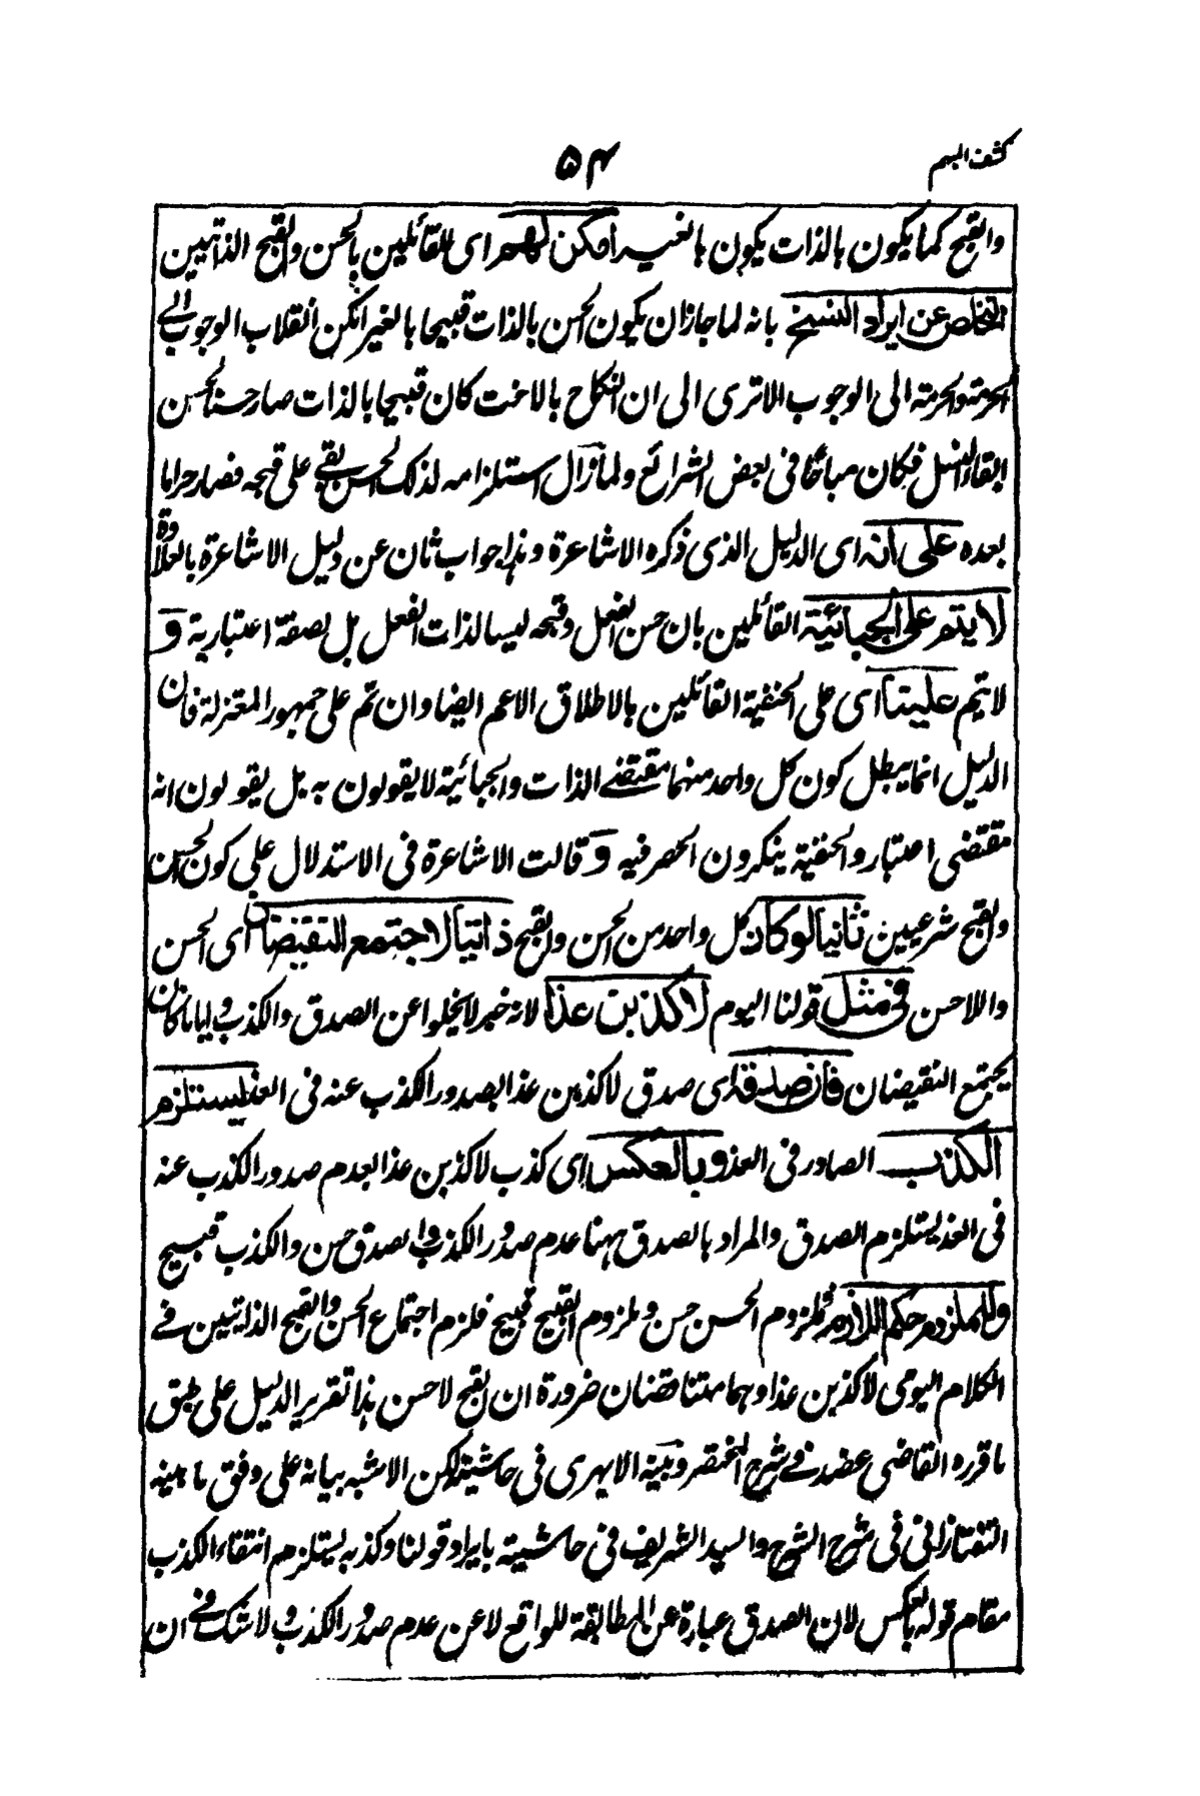 كشف المبهم
۵۴
والقبح كما يكون بالذات يكون بالغير امكن لهم اى للقائلين بالحسن والقبح الذاتيين
التخلص عن ايراد النسخ بانه لما جاز ان يكون الحسن بالذات قبيحا بالغير امكن انقلاب الوجوب الى
الحرمة والحرمة الى الوجوب الا ترى الى ان النكاح بالاخت كان قبيحا بالذات صار حسنا لحسن
ابقاء النسل فكان مباحًا فى بعض الشرائع ولما زال استلزامه لذلك الحسن بقى على قبحه فصار حراما
بعده على انه اى الدليل الذى ذكره الاشاعرة وهذا جواب ثان عن دليل الاشاعرة بالعلاوة
لا يتم على الجبائية القائلين بان حسن الفعل وقبحه ليسا لذات الفعل بل لصفة اعتبارية و
لا يتم علينا اى على الحنفية القائلين بالاطلاق الاعم ايضا وان تم على جمهور المعتزلة فان
الدليل انما يبطل كون كل واحد منهما مقتضى الذات والجبائية لا يقولون به بل يقولون انه
مقتضى اعتبار والحنفية ينكرون الحصر فيه و قالت الاشاعرة فى الاستدلال على كون الحسن
والقبح شرعيين ثانيا لو كان كل واحد من الحسن والقبح ذاتيا لاجتمع النقيضان اى الحسن
واللاحسن فى مثل قولنا اليوم لاكذبن غدا لانه خبر لا يخلوا عن الصدق والكذب وايا ما كان
يجتمع النقيضان فان صدقه اى صدق لاكذبن غدا بصدور الكذب عنه فى الغد يستلزم
الكذب الصادر فى الغد و بالعكس اى كذب لاكذبن غدا بعدم صدور الكذب عنه
فى الغد يستلزم الصدق والمراد بالصدق ههنا عدم صدور الكذب والصدق حسن والكذب قبيح
وللملزوم حكم اللازم فملزوم الحسن حسن وملزوم القبيح قبيح فلزم اجتماع الحسن والقبح الذاتيين فى
الكلام اليومى لاكذبن غدا وهما متناقضان ضرورة ان القبح لاحسن هذا تقرير الدليل على طبق
ما قرره القاضى عضد فى شرح المختصر وبينه الابهرى فى حاشيته لكن الاشبه بيانه على وفق ما بينه
التفتازانى فى شرح الشرح والسيد الشريف فى حاشيته بايراد قولنا وكذبه يستلزم انتفاء الكذب
مقام قوله بالعكس لان الصدق عبارة عن المطابقة للواقع لا عن عدم صدور الكذب ولا شك فى ان